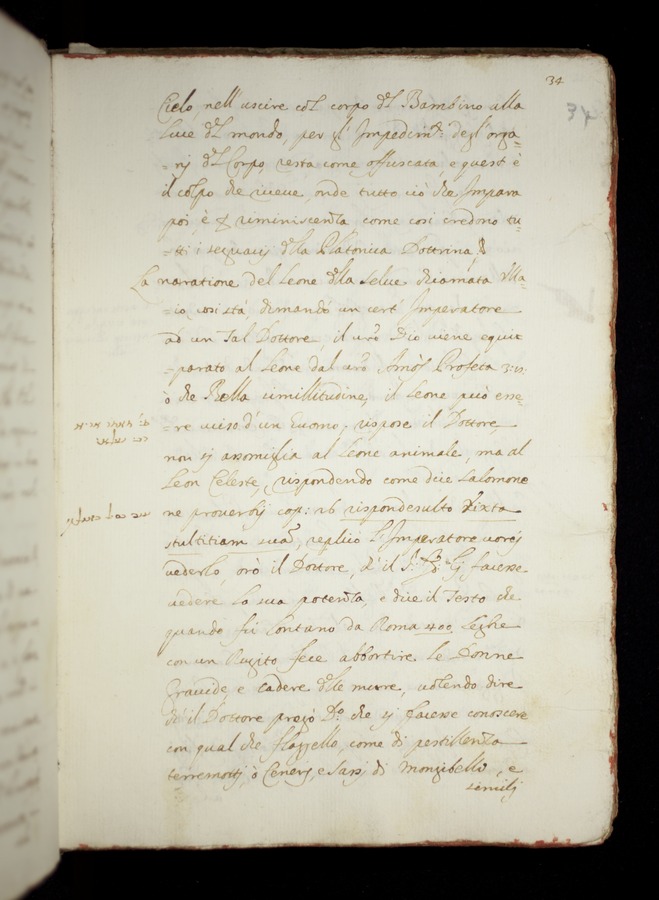 34
34
Cielo, nell'uscire col corpo del Bambino alla
luce del mondo, per gl'Impedim.ti degl'orga=
=nj del Corpo, resta come offuscata, e quest'è
il colpo che riceve, onde tutto ciò che Impara
poi, è per riminiscenza, come così credono tu=
=tti i seguaci della Platonica Dottrina,
La naratione del Leone della selva chiamata
=ia, così stà, dimandò un cert'Imperatore
ad un Tal Dottore, il vro Dio viene equi
=parato al Leone dal vro Amòs Profeta 3:
ò che Bella similitudine, il Leone può esse=
=re ucciso d'un huomo, rispose il Dottore,
non si assomiglia al Leone animale, ma al
Leon Celeste, rispondendo come dice Salomone
ne proverbij cap: 26 risponde stulto Iuxta
stultitiam suam, replicò l'Imperatore vorej
vederlo, orò il Dottore, ch'il facesse
vedere la sua potenza, e dice il Testo che
quando fù lontano da Roma 400 Leghe
con un Rugito fece abbortire le Donne
Gravide, e cadere delle mura, volendo dire
ch'il Dottore pregò D.o che si facesse conoscere
con qual che flaggello, come di pestillenza
terremotj, ò Cenerj, e sassi di Mongibello, e
similj